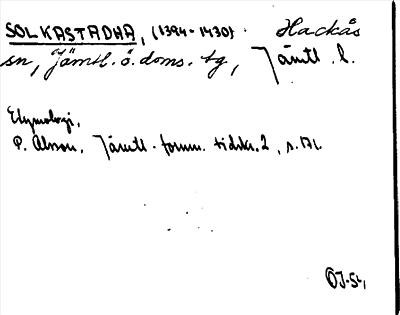 SOLKASTADHA, (1394-1430). Hackås
sn, Jämtl. ö. doms. tg, Jämtl. l.
Etymologi,
P. Olsson, Jämtl. fornm. tidskr. 2, s. 171.